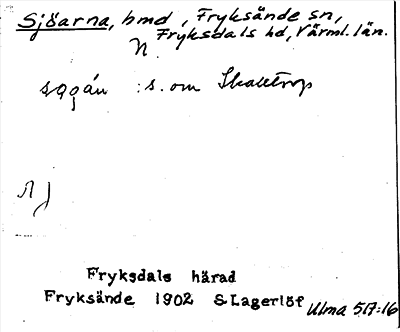 Sjöarna, hmd, Fryksände sn,
N. Fryksdals hd, Värml. län.
:s. om
Fryksdals härad
Fryksände 1902 S Lagerlöf Ulma 517:16